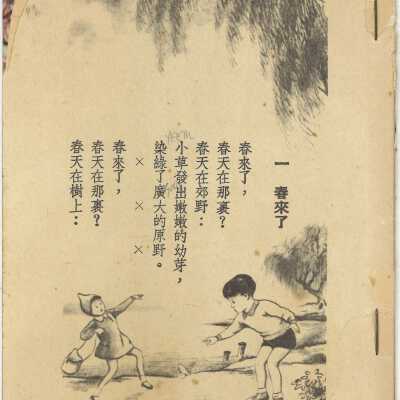 一　春來了
春來了，
春天在那裏？
春天在郊野：
小草發出嫩嫩的幼芽，
染綠了廣大的原野。
×　×　×
春來了，
春天在那裏？
春天在樹上：